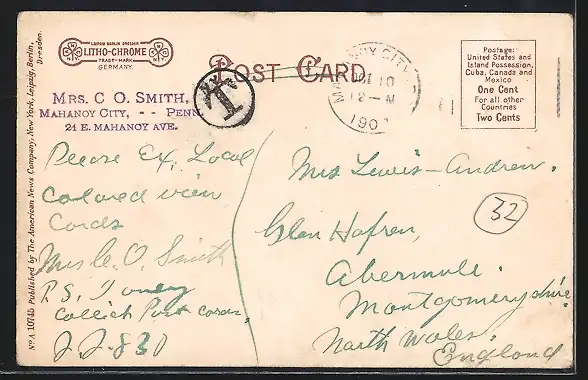 LEIPZIG BERLIN DRESDEN
LITHO-CHROME
TRADE-MARK
GERMANY.
POST CARD
T
MAHANOY CITY
OCT 10
12-M
190
Postage:
United States and
Island Possession,
Cuba, Canada and
Mexico
One Cent
For all other
Countries
Two Cents
MRS. C. O. SMITH,
MAHANOY CITY, - - PENN.
21 E. MAHANOY AVE.
Please Ex, Local
colored view
Cards
Mrs C. O. Smith
P.S. I only
collect Post cards,
J. J. 830
Mrs Lewis-Andrew.
32
Glan Hafren,
Abermule.
Montgomeryshire
North Wales.
England
No A 10745 Published by The American News Company, New York, Leipzig, Berlin,
Dresden.